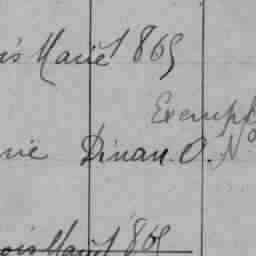 is Marie 1869
Exempt
rie Dinan. O. N°
ois Marie 1869